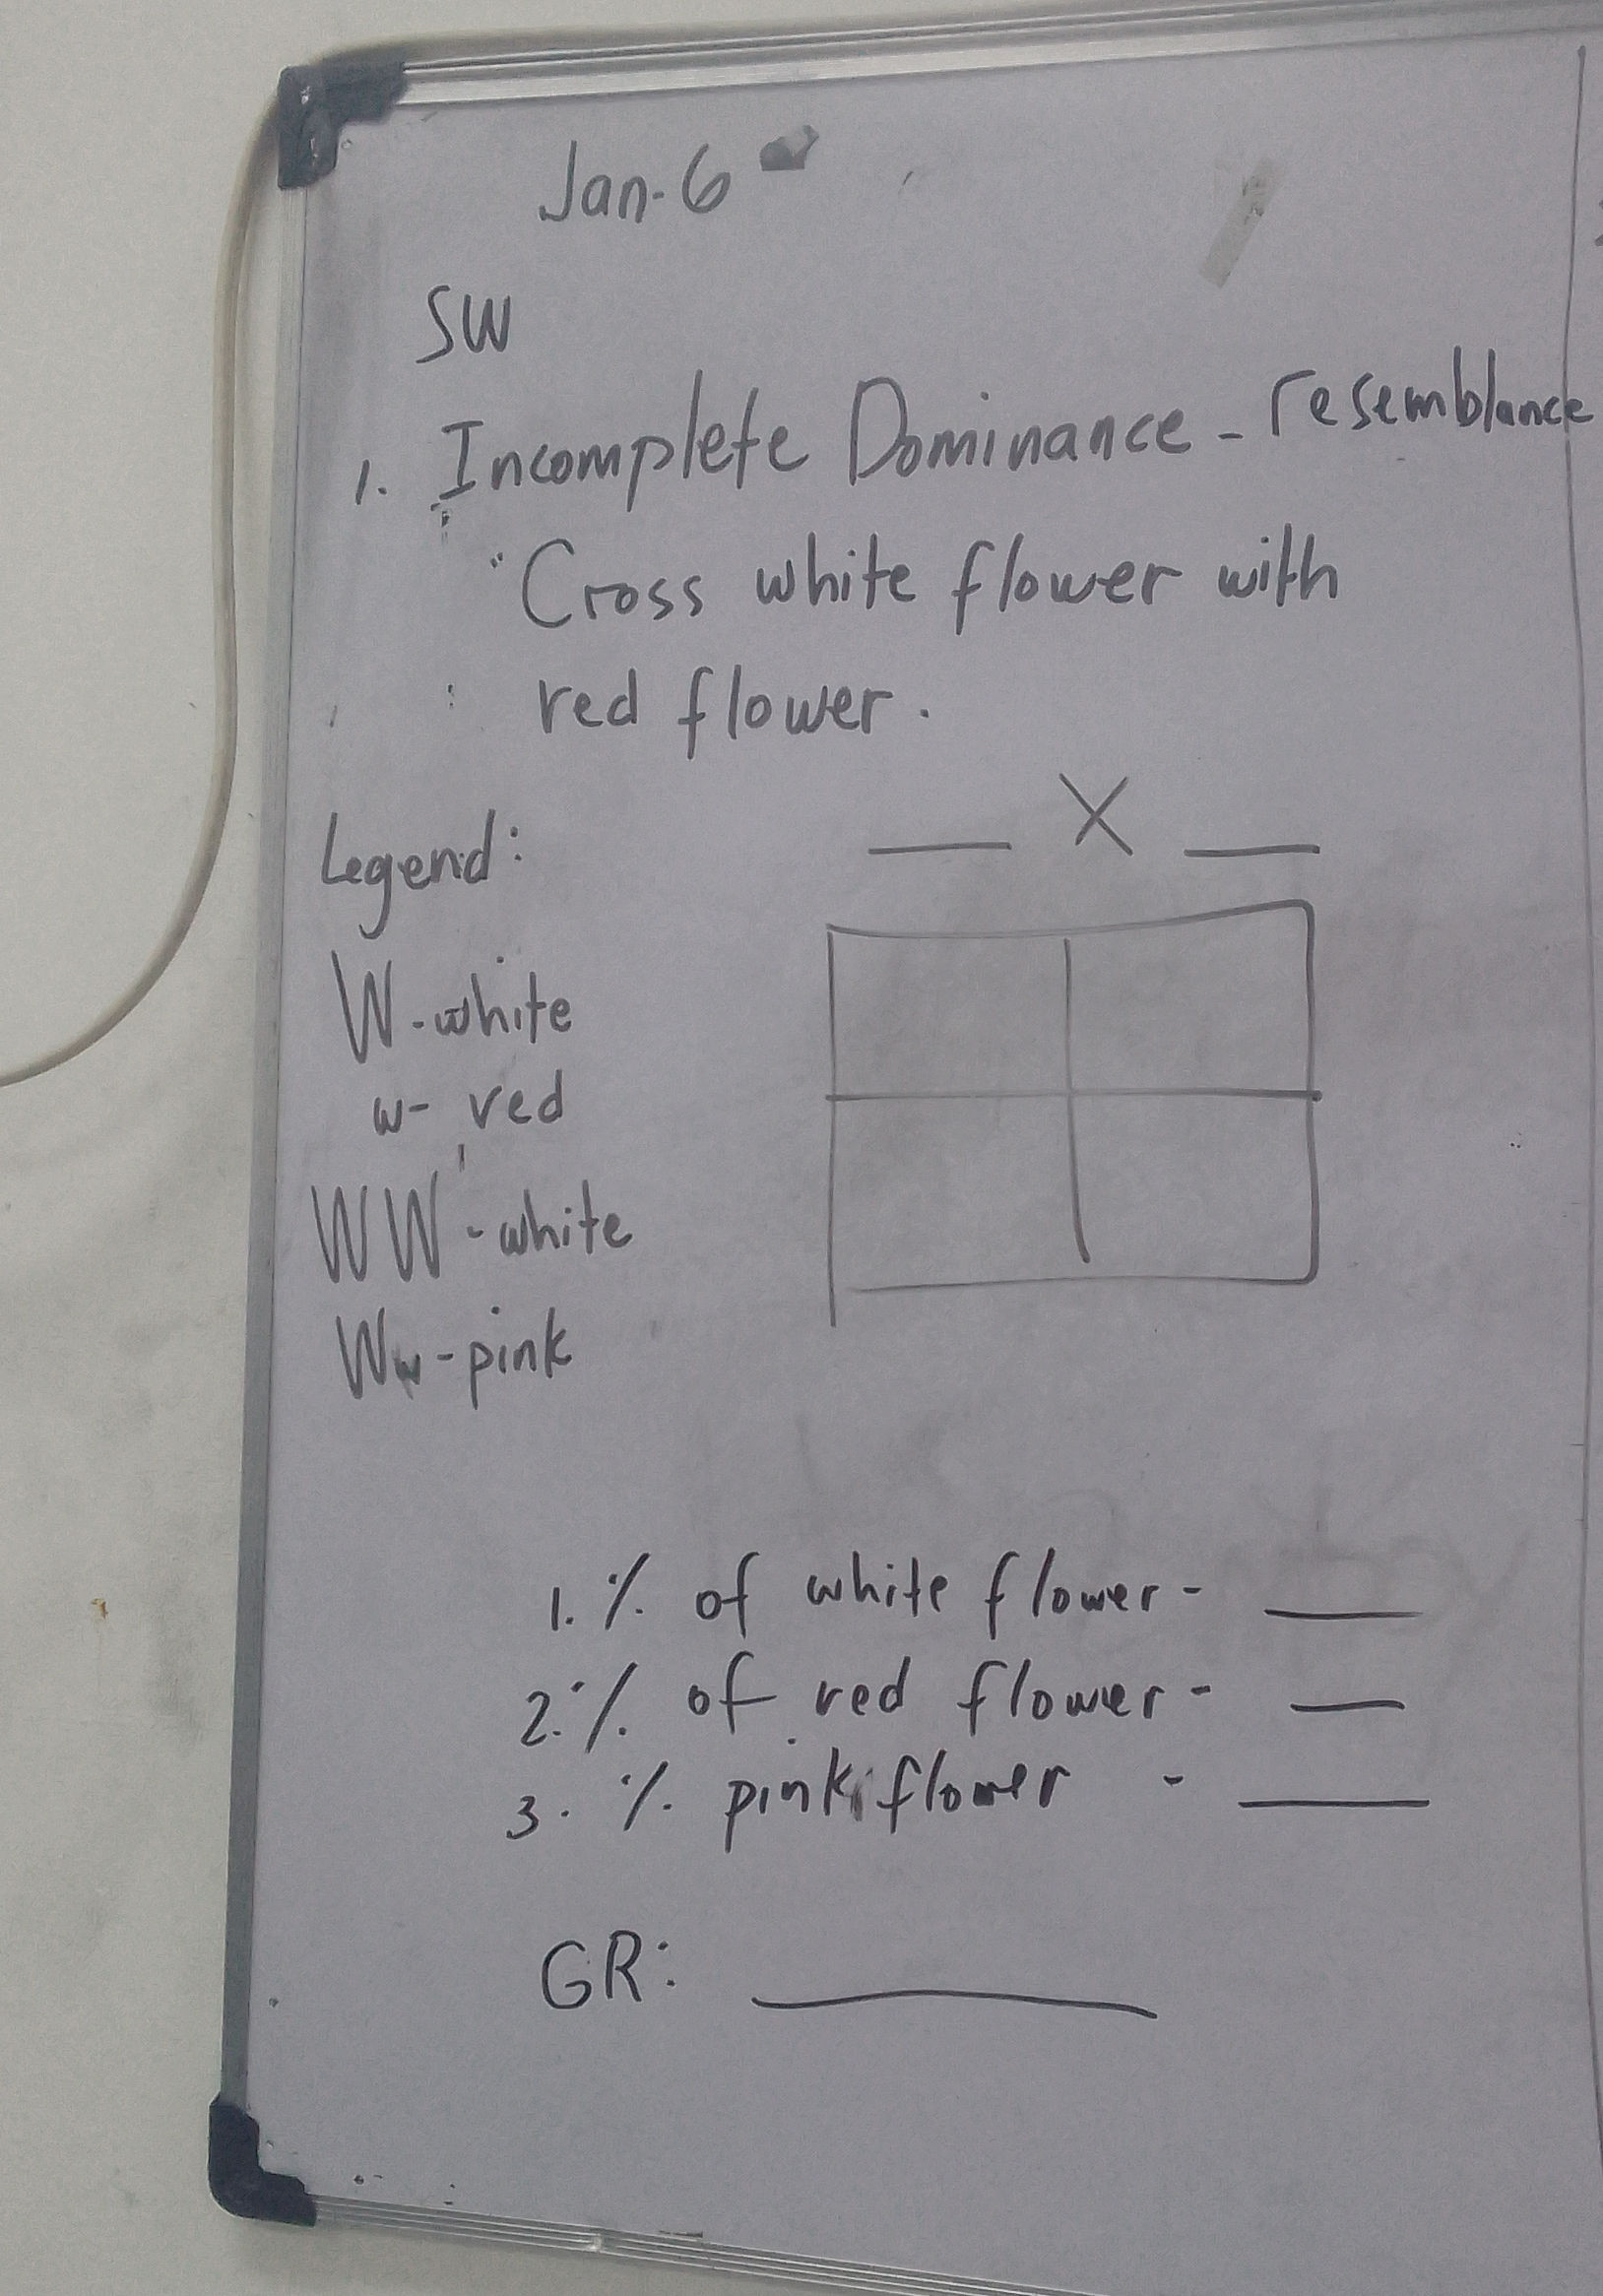 Jan. 6
SW
1. Incomplete Dominance - resemblance
Cross white flower with
red flower.
___ X ___
Legend:
W - white
w - red
WW - white
Ww - pink
1. % of white flower - ___
2. % of red flower - ___
3. % pink flower - ___
GR: ___